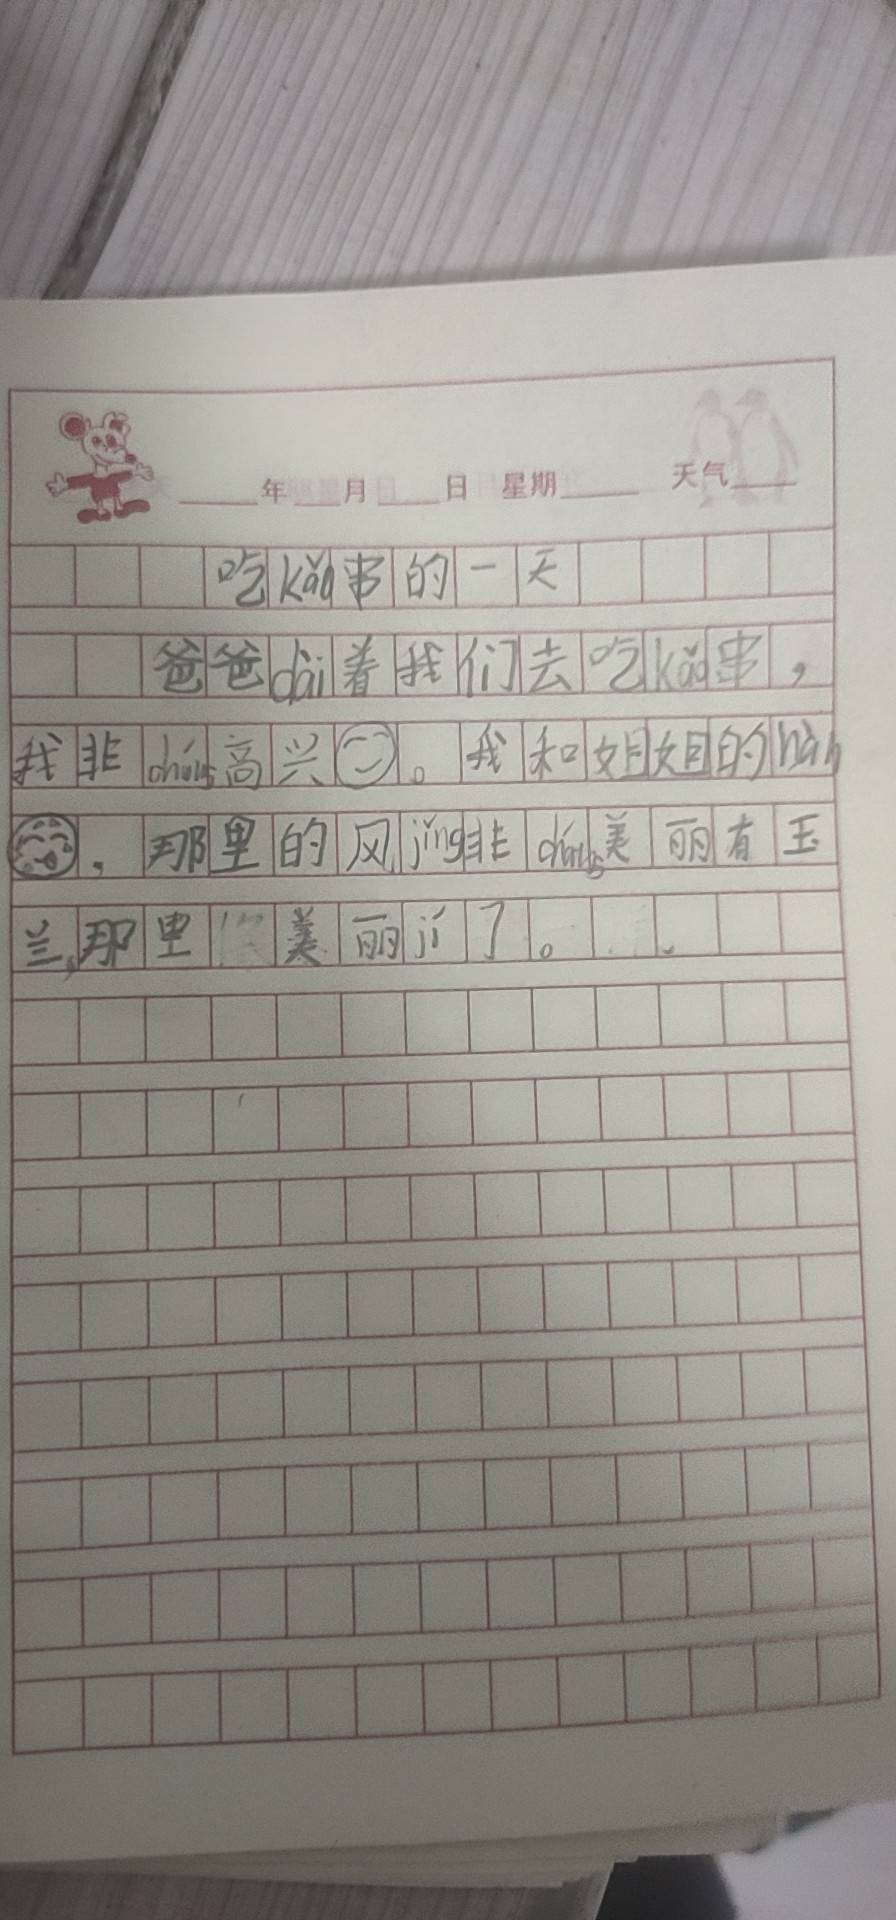 年 月 日 星期 天气
吃kǎo串的一天
爸爸dài着我们去吃kǎo串，
我非cháng高兴。我和姐姐的
，那里的风jǐng非cháng美丽有玉
兰，那里美丽jí了。